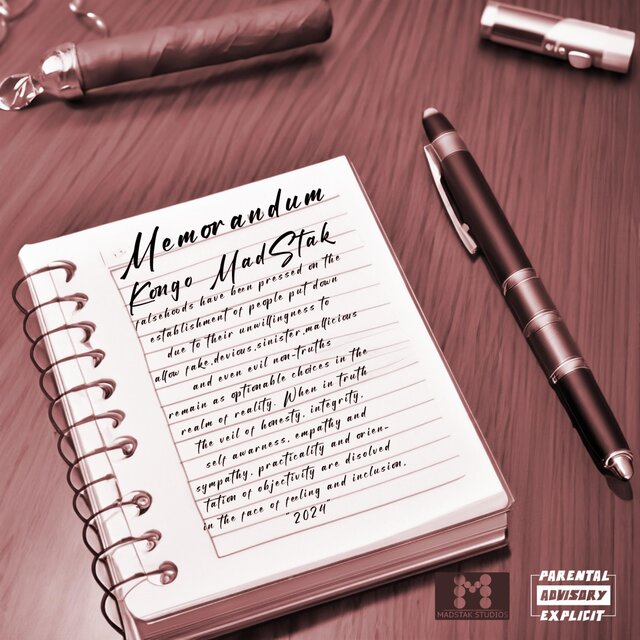 Memorandum
Kongo MadStak
falsehoods have been pressed on the
establishment of people put down
due to their unwillingness to
allow fake,devious,sinister,mallicious
and even evil non-truths
remain as optionable choices in the
realm of reality. When in truth
the veil of honesty, integrity,
self awarness, empathy and
sympathy, practicality and orien-
tation of objectivity are disolved
in the face of feeling and inclusion.
"2024"
MADSTAK STUDIOS
PARENTAL
ADVISORY
EXPLICIT